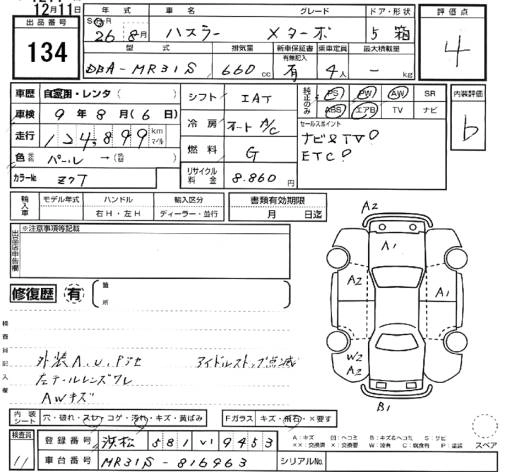 12月11日
出品番号
134
年式 車名 グレード ドア・形状
SHR 26 8月 ハスラー Xターボ 5 箱
型式 排気量 新車保証書 有無記入 乗車定員 最大積載量
DBA-MR31S 660cc 有 4人 - kg
評価点
4
車歴 自家用・レンタ( )
車検 9年8月(6日)
走行 124,899 km マイル
色 パール→( )
カラーNo Z7T
シフト IAT
冷房 オートA/C
燃料 G
リサイクル料金 8,860円
純正のみ PS PW AW SR
ABS エアB TV ナビ
セールスポイント
ナビ&TV
ETC
内装評価
b
輸入車 モデル年式 ハンドル 輸入区分
右H・左H ディーラー・並行
書類有効期限
月 日迄
出品店申告欄
※注意事項等記載
修復歴 有 ( 箇所
A2
A1
A2
A1
W2
A2
B1
検査員記入欄
外装A.U.Pイセ アイドルストップ点滅
左テールレンズワレ
AWキズ
内装シート 穴・破れ・スレ・コゲ・汚れ・キズ・黄ばみ
Fガラス キズ・飛石・×要す
検査員
11
登録番号 浜松 581 い 9453
車台番号 MR31S-816963
シリアルNo.
A:キズ 凹:ヘコミ B:キズ&ヘコミ S:サビ
××:交換済 ×:要交換 W:波有 C:腐食有 P:塗装
スペア